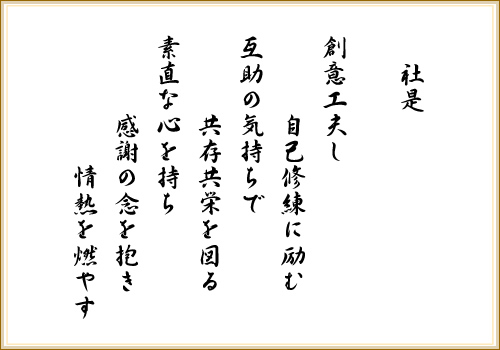 社是
創意工夫し
自己修練に励む
互助の気持ちで
共存共栄を図る
素直な心を持ち
感謝の念を抱き
情熱を燃やす